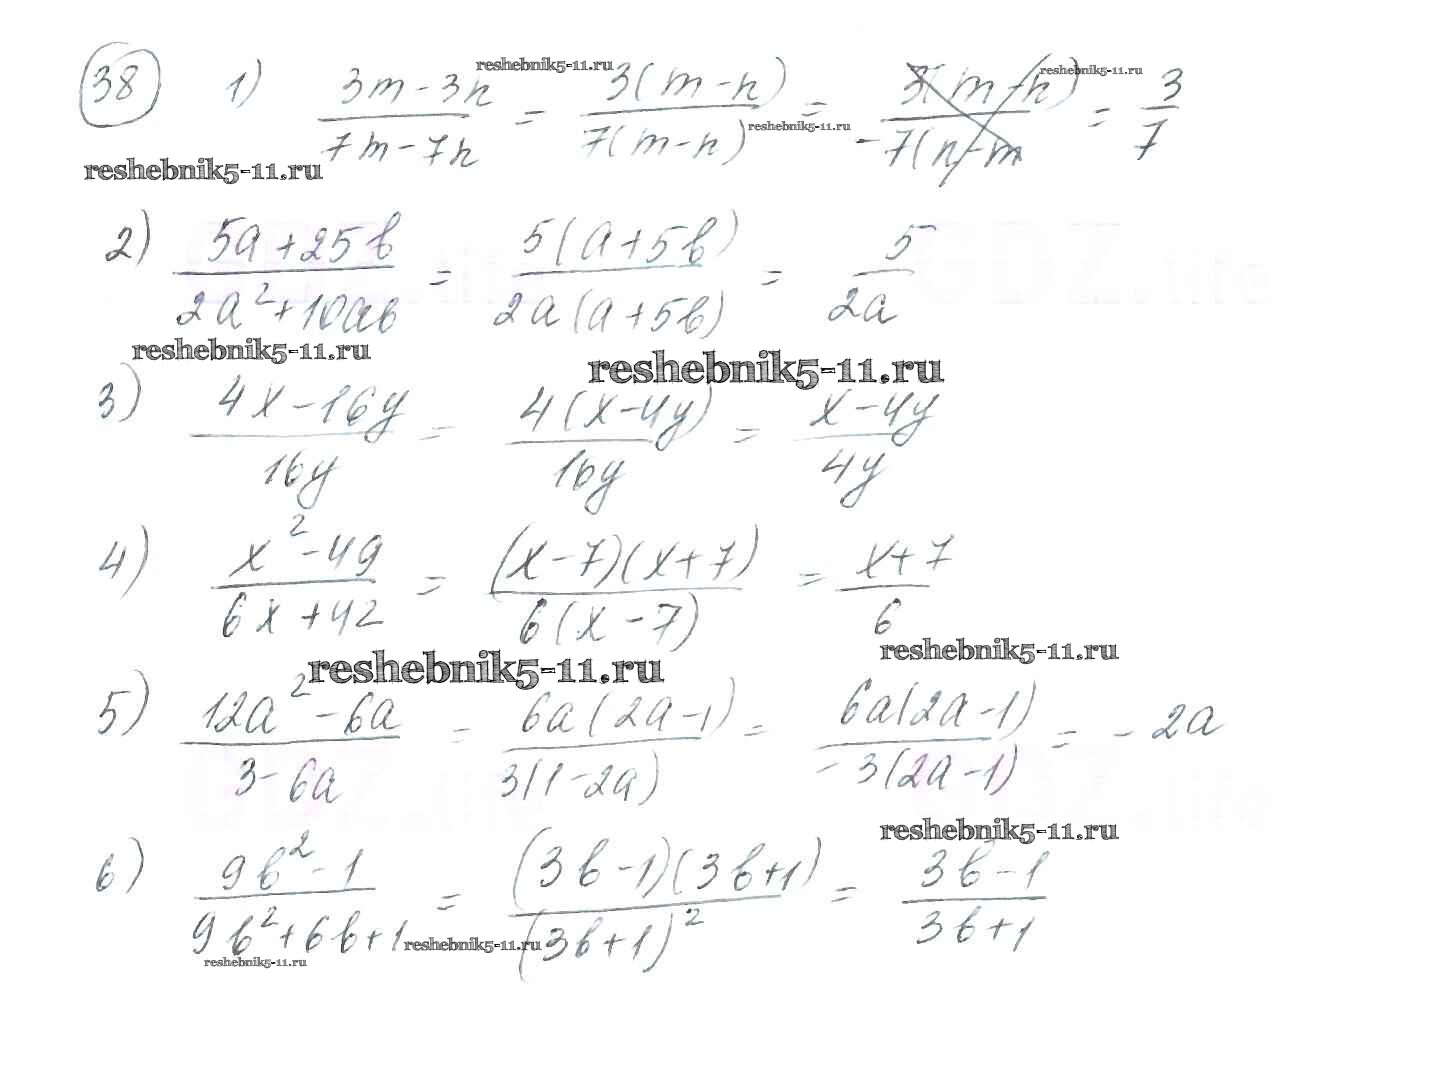 38 1) (3m - 3n)/(7m - 7n) = 3(m - n)/7(m - n) = 3(m - n)/-7(n - m = 3/7
reshebnik5-11.ru
reshebnik5-11.ru
reshebnik5-11.ru
reshebnik5-11.ru
2) (5a + 25b)/(2a² + 10ab) = 5(a + 5b)/2a(a + 5b) = 5/2a
reshebnik5-11.ru
reshebnik5-11.ru
3) (4x - 16y)/16y = 4(x - 4y)/16y = (x - 4y)/4y
4) (x² - 49)/(6x + 42) = (x - 7)(x + 7)/6(x - 7) = (x + 7)/6
reshebnik5-11.ru
reshebnik5-11.ru
5) (12a² - 6a)/(3 - 6a) = 6a(2a - 1)/3(1 - 2a) = 6a(2a - 1)/-3(2a - 1) = - 2a
reshebnik5-11.ru
6) (9b² - 1)/(9b² + 6b + 1) = (3b - 1)(3b + 1)/(3b + 1)² = (3b - 1)/(3b + 1)
reshebnik5-11.ru
reshebnik5-11.ru